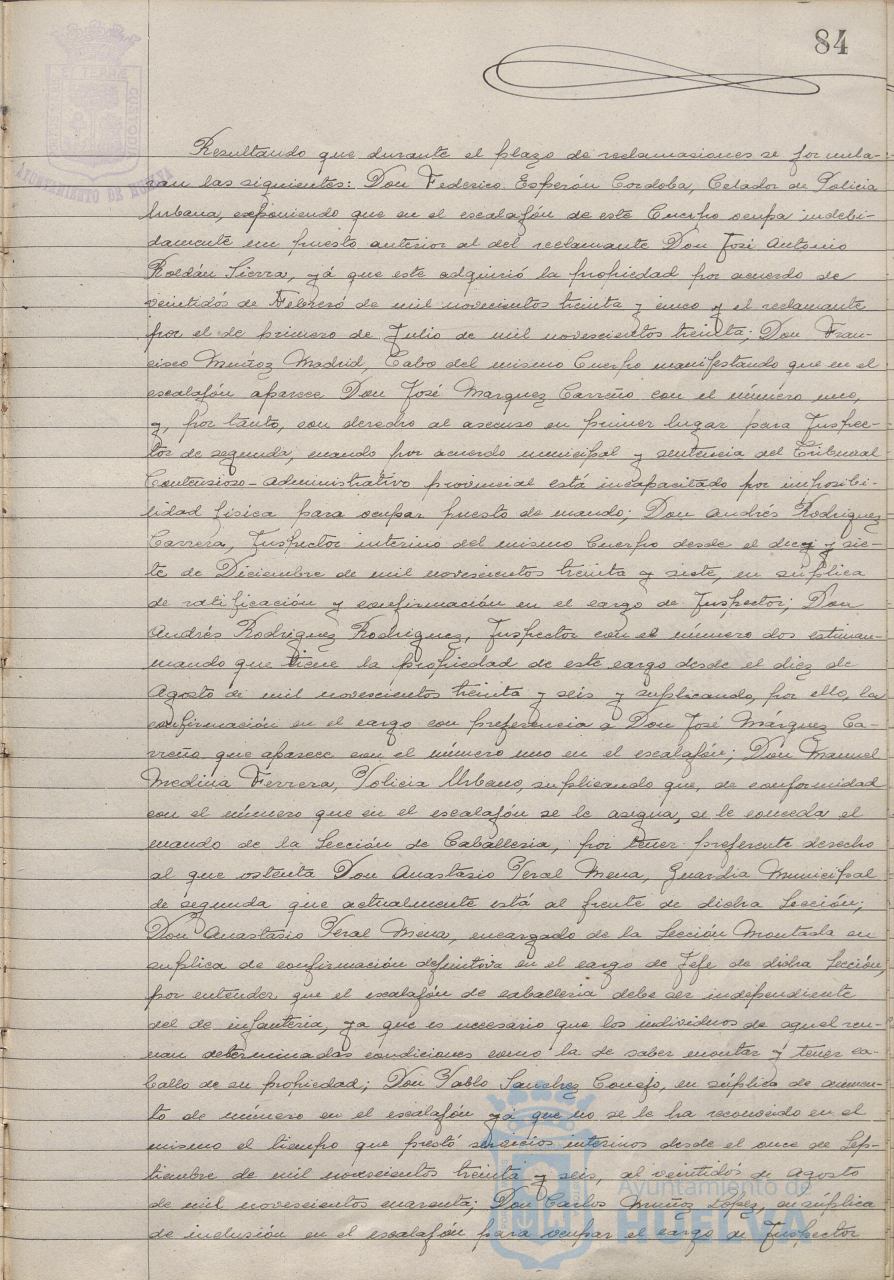 84
AYUNTAMIENTO DE HUELVA
Resultando que durante el plazo de reclamaciones se formula-
ran las siguientes: Don Federico Esperón Cordoba, Celador de Policia
Urbana, exponiendo que en el escalafón de este Cuerpo ocupa indebi-
damente un puesto anterior al del reclamante Don José Antonio
Roldán Sierra, yá que este adquirió la propiedad por acuerdo de
veintidós de Febrero de mil novecientos treinta y cinco y el reclamante
por el de primero de Julio de mil novescientos treinta; Don Fran-
cisco Muñoz Madrid, Cabo del mismo Cuerpo manifestando que en el
escalafón aparece Don José Marquez Carreño con el número uno,
y, por tanto, con derecho al ascenso en primer lugar para Inspec-
tor de segunda, cuando por acuerdo municipal y sentencia del Tribunal
Contensioso-Administrativo provincial está incapacitado por imposibi-
lidad física para ocupar puesto de mando; Don Andrés Rodriguez
Carrera, Inspector interino del mismo Cuerpo desde el diez y sie-
te de Diciembre de mil novescientos treinta y siete, en súplica
de ratificación y confirmación en el cargo de Inspector; Don
Andrés Rodriguez Rodriguez, Inspector con el número dos estiman-
mando que tiene la propiedad de este cargo desde el diez de
Agosto de mil novescientos treinta y seis y suplicando, por ello, la
confirmación en el cargo con preferencia a Don José Márquez Ca-
rreño que aparece con el número uno en el escalafón; Don Manuel
Medina Ferrera, Policia Urbano, suplicando que, de conformidad
con el número que en el escalafón se le asegna, se le conceda el
mando de la Sección de Caballeria, por tener preferente derecho
al que ostenta Don Anastasio Peral Mena, Guardia Municipal
de segunda que actualmente está al frente de dicha Sección;
Don Anastasio Peral Mena, encargado de la Sección Montada en
suplica de confirmación definitiva en el cargo de Jefe de dicha Sección,
por entender que el escalafón de caballeria debe ser independiente
del de infanteria, ya que es necesario que los individuos de aquel reu-
nan determinadas condiciones como la de saber montar y tener ca-
ballo de su propiedad; Don Pablo Sanchez Conejo, en súplica de aumen-
to de número en el escalafón yá que no se le ha reconocido en el
mismo el tiempo que prestó servicios interinos desde el once de Sep-
tiembre de mil novescientos treinta y seis, al veintidós de Agosto
de mil novescientos cuarenta; Don Carlos Muñoz López, en súplica
de inclusión en el escalafón para ocupar el cargo de Inspector
Ayuntamiento de
HUELVA